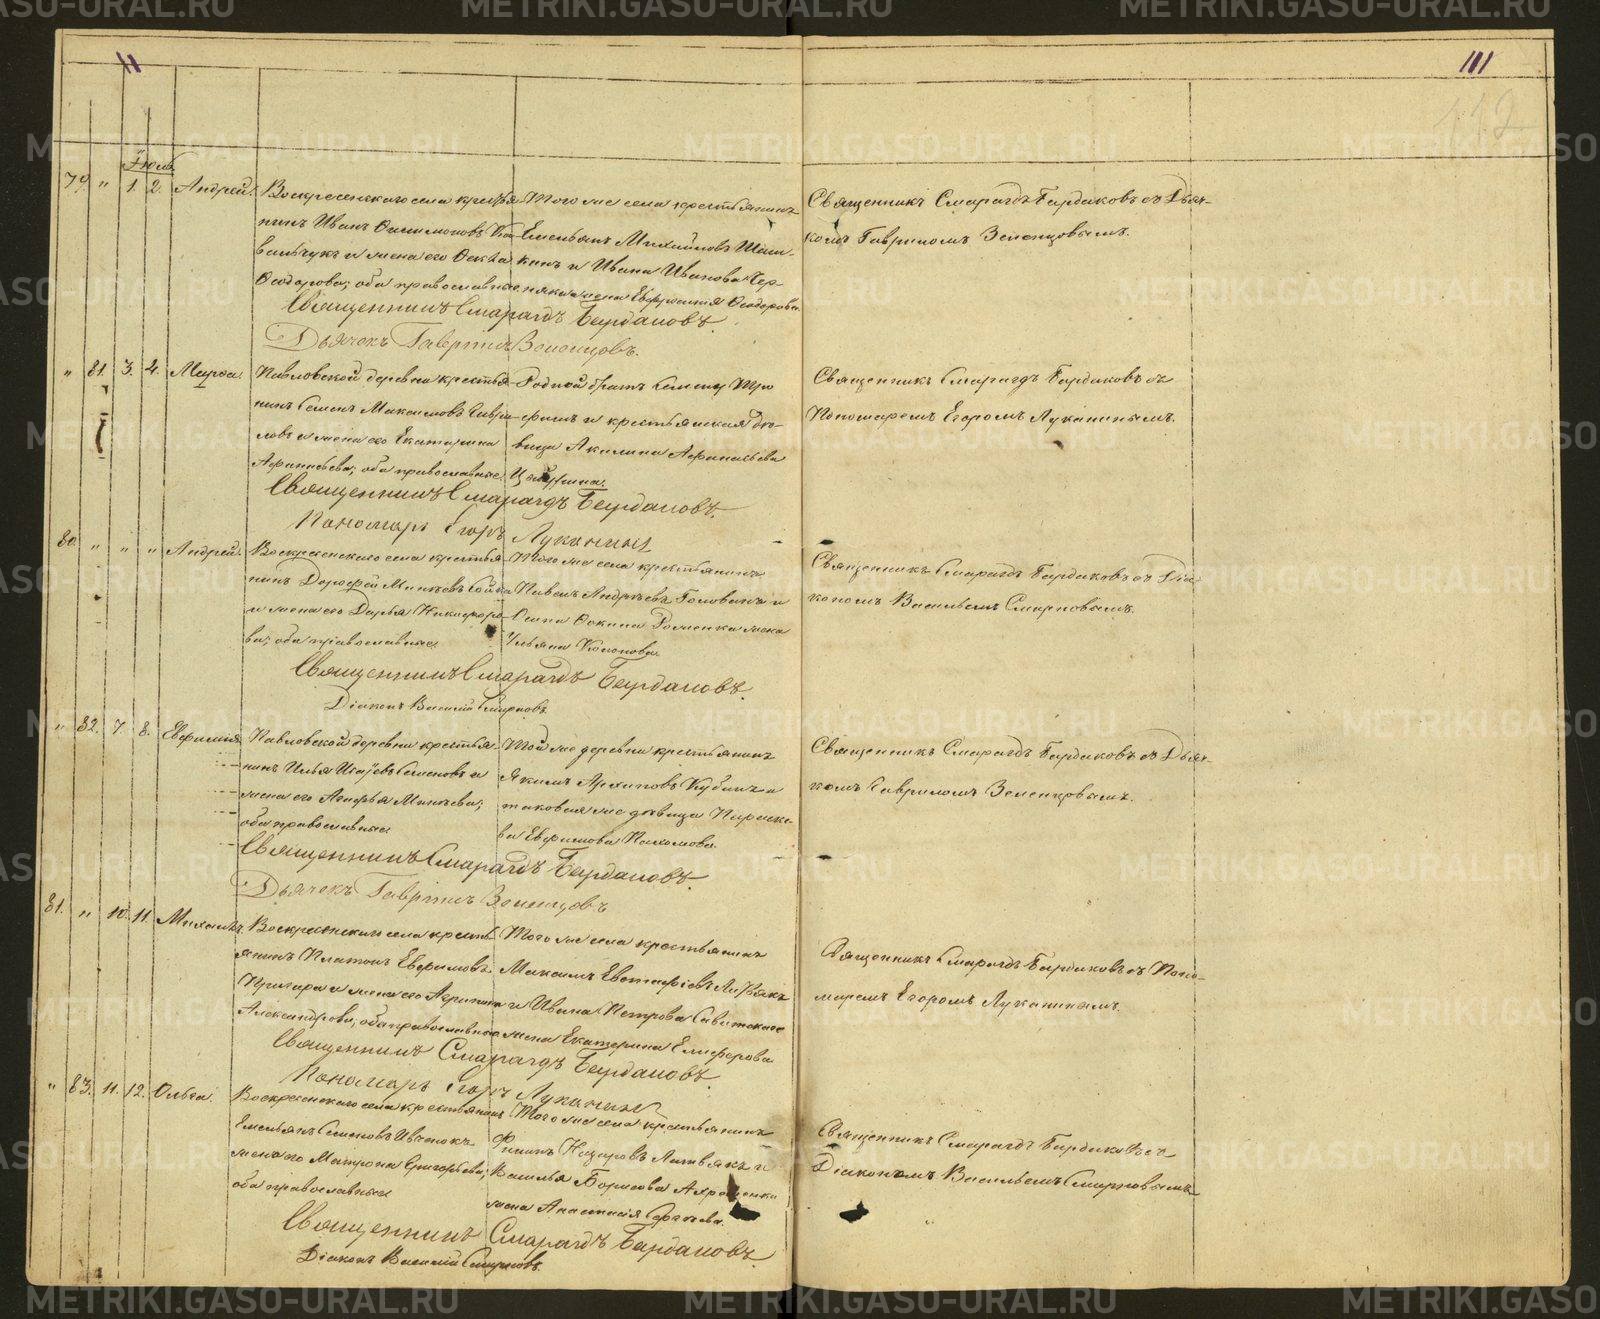 METRIKI.GASO-URAL.RU
11
111
112
Іюль
79 " 1. 2. Андрей.
Воскресенскаго села крестья-
нинъ Иванъ
и жена его Ѳекла
Ѳеодорова; оба православные
Того же села крестьянинъ
Емельянъ Михайловъ
и Ивана Иванова
жена Евфросинія Ѳеодорова.
Священникъ Смарагдъ Бардаковъ съ Дьяч-
комъ Гавриломъ Зеленцовымъ.
Священникъ Смарагдъ Бардаковъ.
Дьячекъ Гавріилъ Зеленцовъ.
" 81. 3. 4. Марѳа.
Павловской деревни крестья-
нинъ Семенъ Максимовъ Гаври-
ловъ и жена его Екатерина
Аѳанасьева; оба православные.
Родной братъ Семену Тро-
фимъ и крестьянская дѣ-
вица Акилина Аѳанасьева
Священникъ Смарагдъ Бардаковъ съ
Пономаремъ Егоромъ Луканинымъ.
Священникъ Смарагдъ Бардаковъ.
Пономарь Егоръ Луканинъ
80 " " " Андрей.
Воскресенскаго села крестья-
нинъ Дороѳей
и жена его Дарья Никифоро-
ва; оба православные
Того же села крестьянинъ
Павелъ Андреевъ Голованъ и
Осипа Ѳокина жена
Ульяна
Священникъ Смарагдъ Бардаковъ съ Діа-
кономъ Васильемъ Смирновымъ.
Священникъ Смарагдъ Бардаковъ.
Діаконъ Василій Смирновъ
" 82. 7. 8. Евфимія
Павловской деревни крестья-
нинъ Илья Семеновъ и
жена его Агафья
оба православные
Той же деревни крестьянинъ
Якимъ Архиповъ Кубанъ и
таковая же дѣвица Параске-
ва Евфимова Пахомова.
Священникъ Смарагдъ Бардаковъ съ Дьяч-
комъ Гавриломъ Зеленцовымъ.
Священникъ Смарагдъ Бардаковъ.
Дьячекъ Гавріилъ Зеленцовъ
81. " 10. 11. Михаилъ.
Воскресенскаго села кресть-
янинъ Платонъ Евфимовъ
и жена его Агрипина
Александрова; оба православные
Того же села крестьянинъ
Максимъ Евстафіевъ
и Ивана Петрова
жена Екатерина Елиферова
Священникъ Смарагдъ Бардаковъ съ Поно-
маремъ Егоромъ Луканинымъ.
Священникъ Смарагдъ Бардаковъ.
Пономарь Егоръ Луканинъ
" 83. 11. 12. Ольга.
Воскресенскаго села крестьянинъ
Емельянъ Семеновъ Ивченокъ
жена его Матрона Григорьева;
оба православные
Того же села крестьянинъ
Филипъ Назаровъ Литвякъ и
Василья Борисова
жена Анастасія Сергеева.
Священникъ Смарагдъ Бардаковъ съ
Діакономъ Васильемъ Смирновымъ
Священникъ Смарагдъ Бардаковъ
Діаконъ Василій Смирновъ.